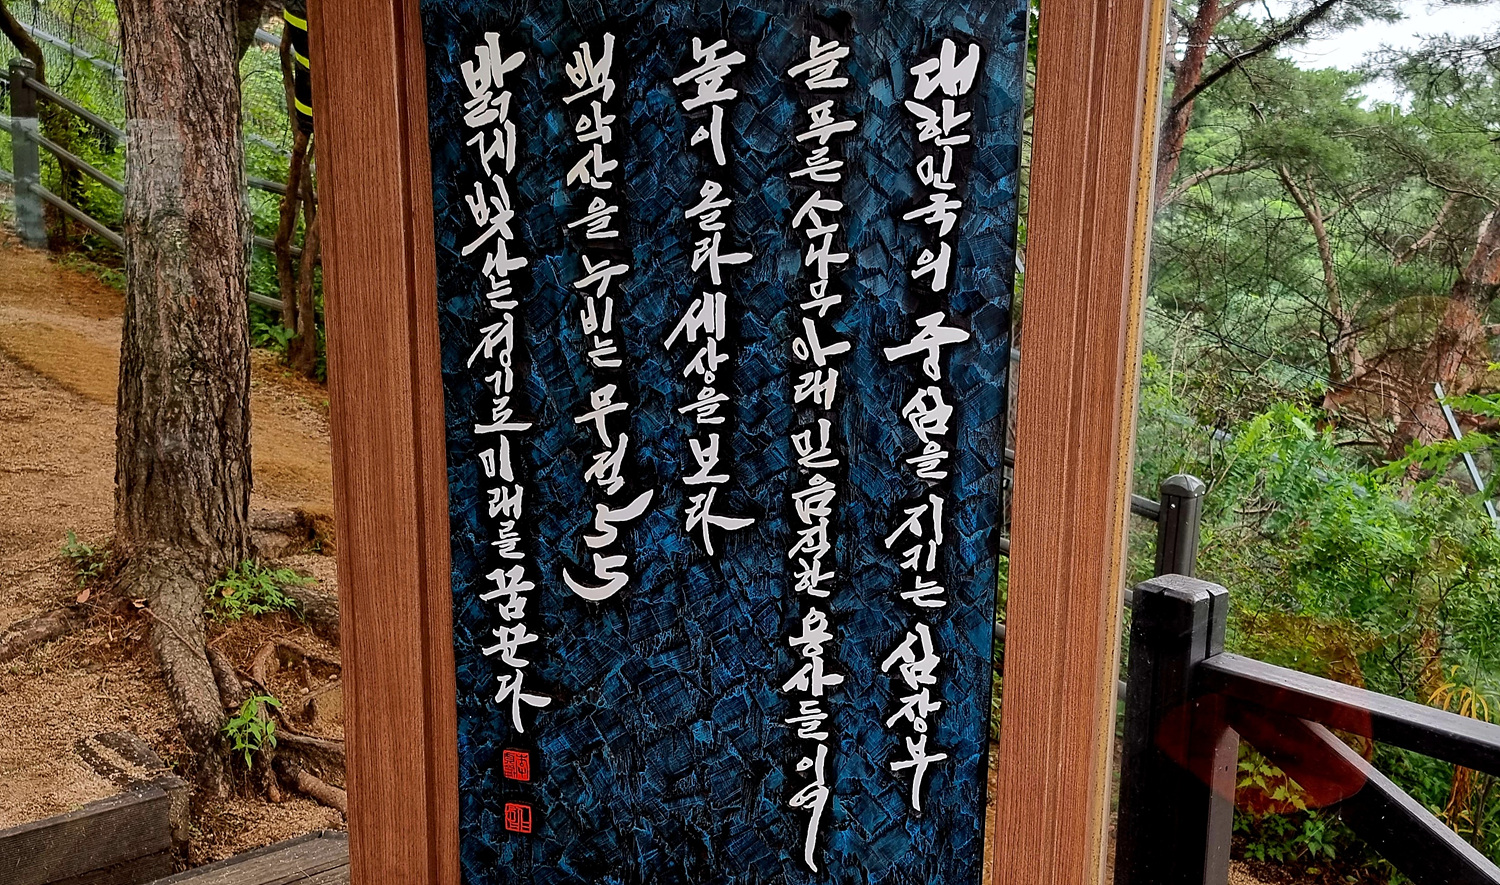 대한민국의 중심을 지키는 심장부
늘 푸른 소나무 아래 믿음직한 용사들이여
높이 올라 세상을 보라
백악산을 누비는 무적 55
밝게 빛나는 정기로 미래를 꿈꾼다